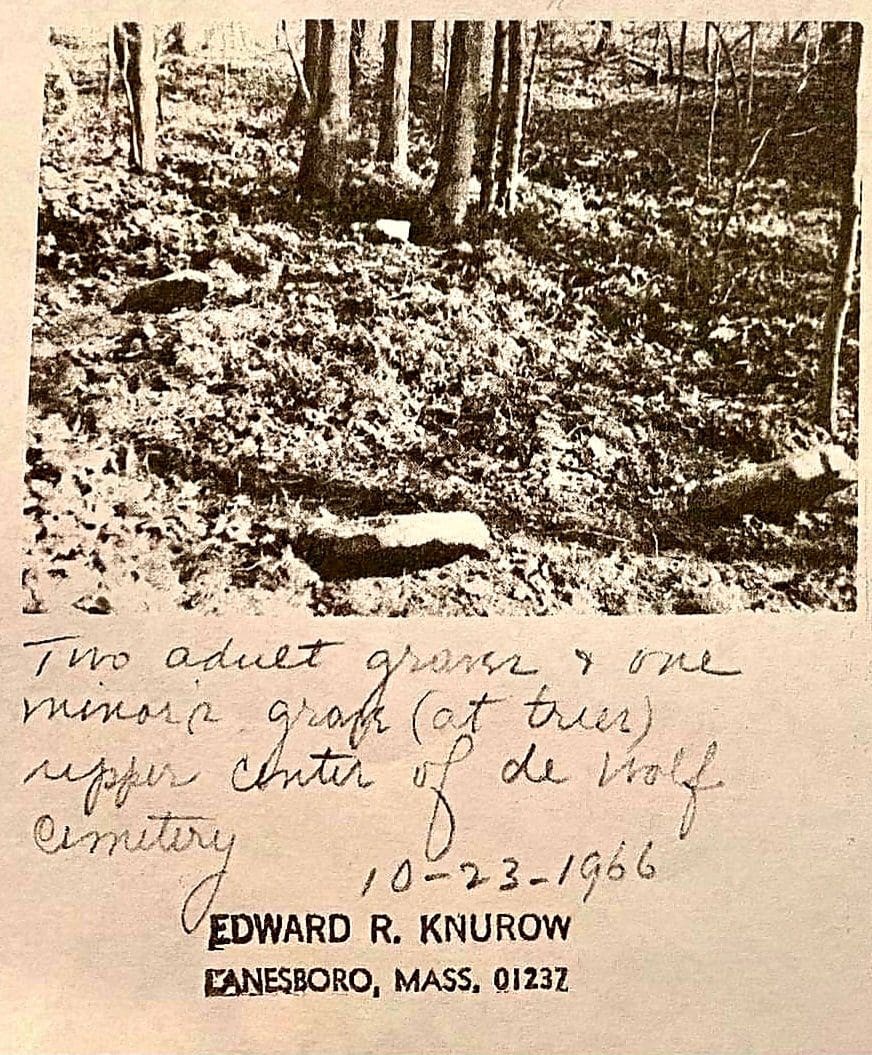 Two adult graves & one
minor's grave (at trees)
upper center of de Wolf
Cemetery
10-23-1966
EDWARD R. KNUROW
LANESBORO, MASS. 01237